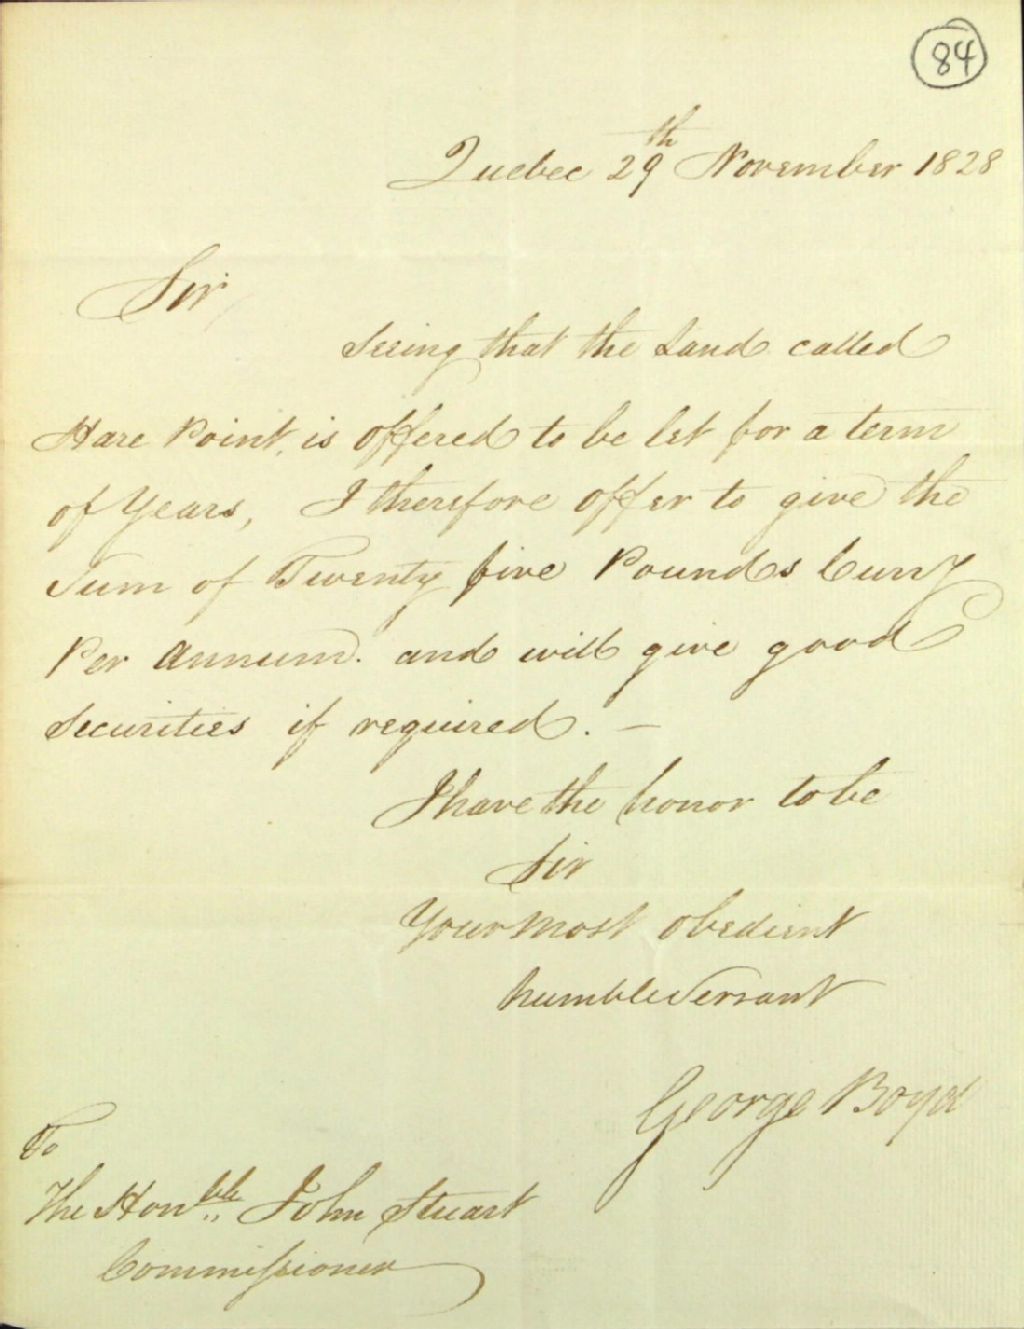 84
Quebec 29th November 1828
Sir
Seeing that the Land called
Hare Point, is offered to be let for a term
of Years, I therefore offer to give the
Sum of Twenty five Pounds Curry
Per Annum. and will give good
Securities if required. —
I have the honor to be
Sir
Your most obedient
humble Servant
George Boyd
To
The Honble John Stuart
Commissioner